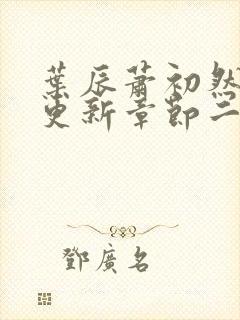 葉辰蕭初然
更新章節二
鄧廣名